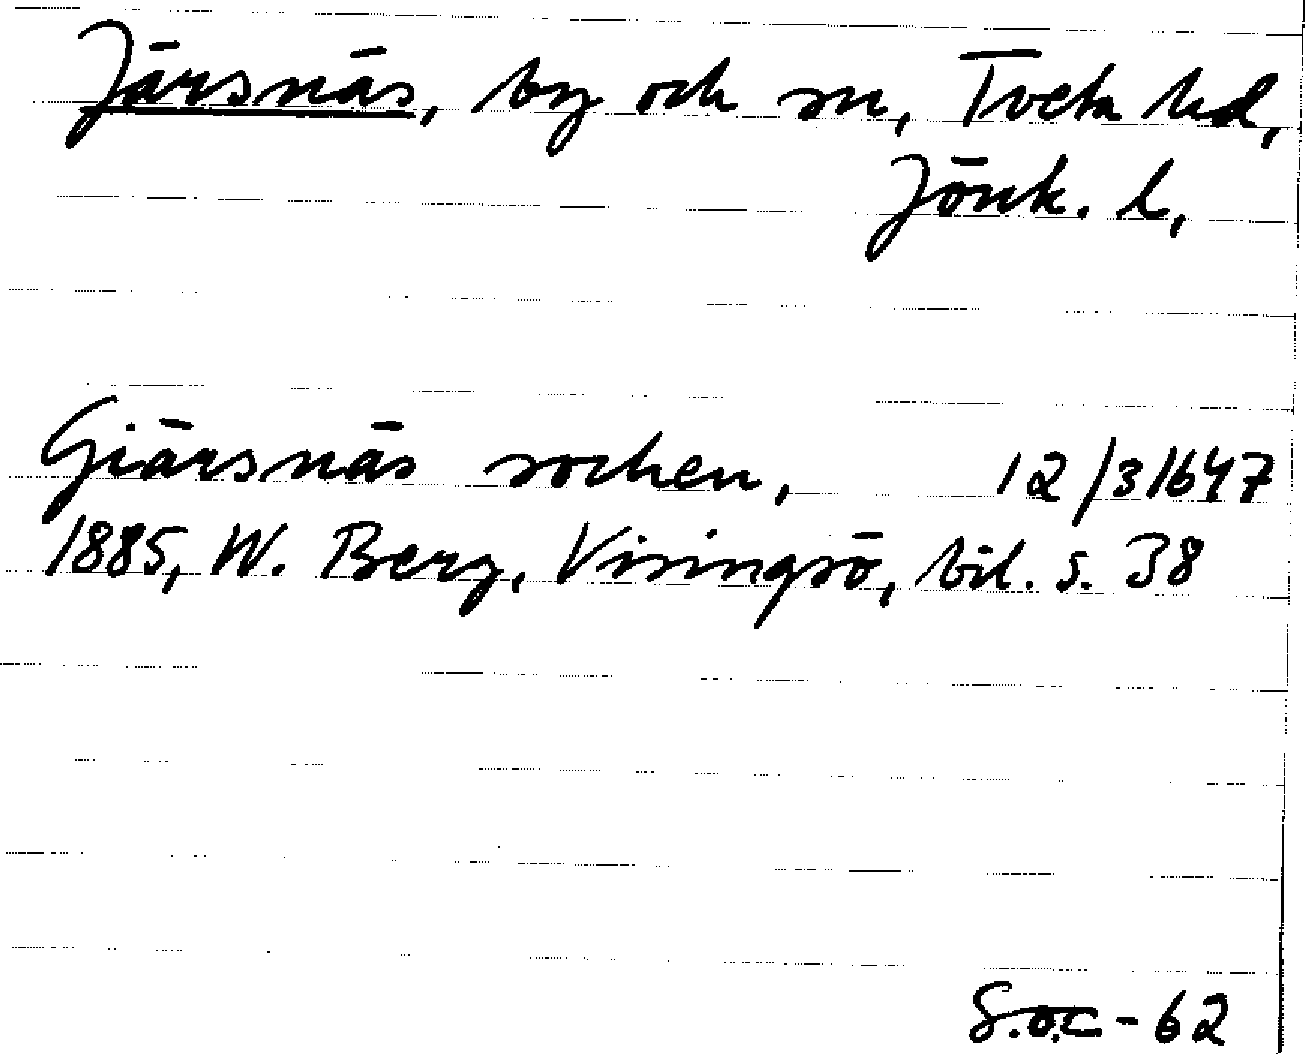 Järsnäs, by och sn, Tveta hd,
Jönk. l,
Giärsnäs sochen, 12/3 1647
1885, W. Berg, Visingsö, bil. s. 38
S.O.C-62